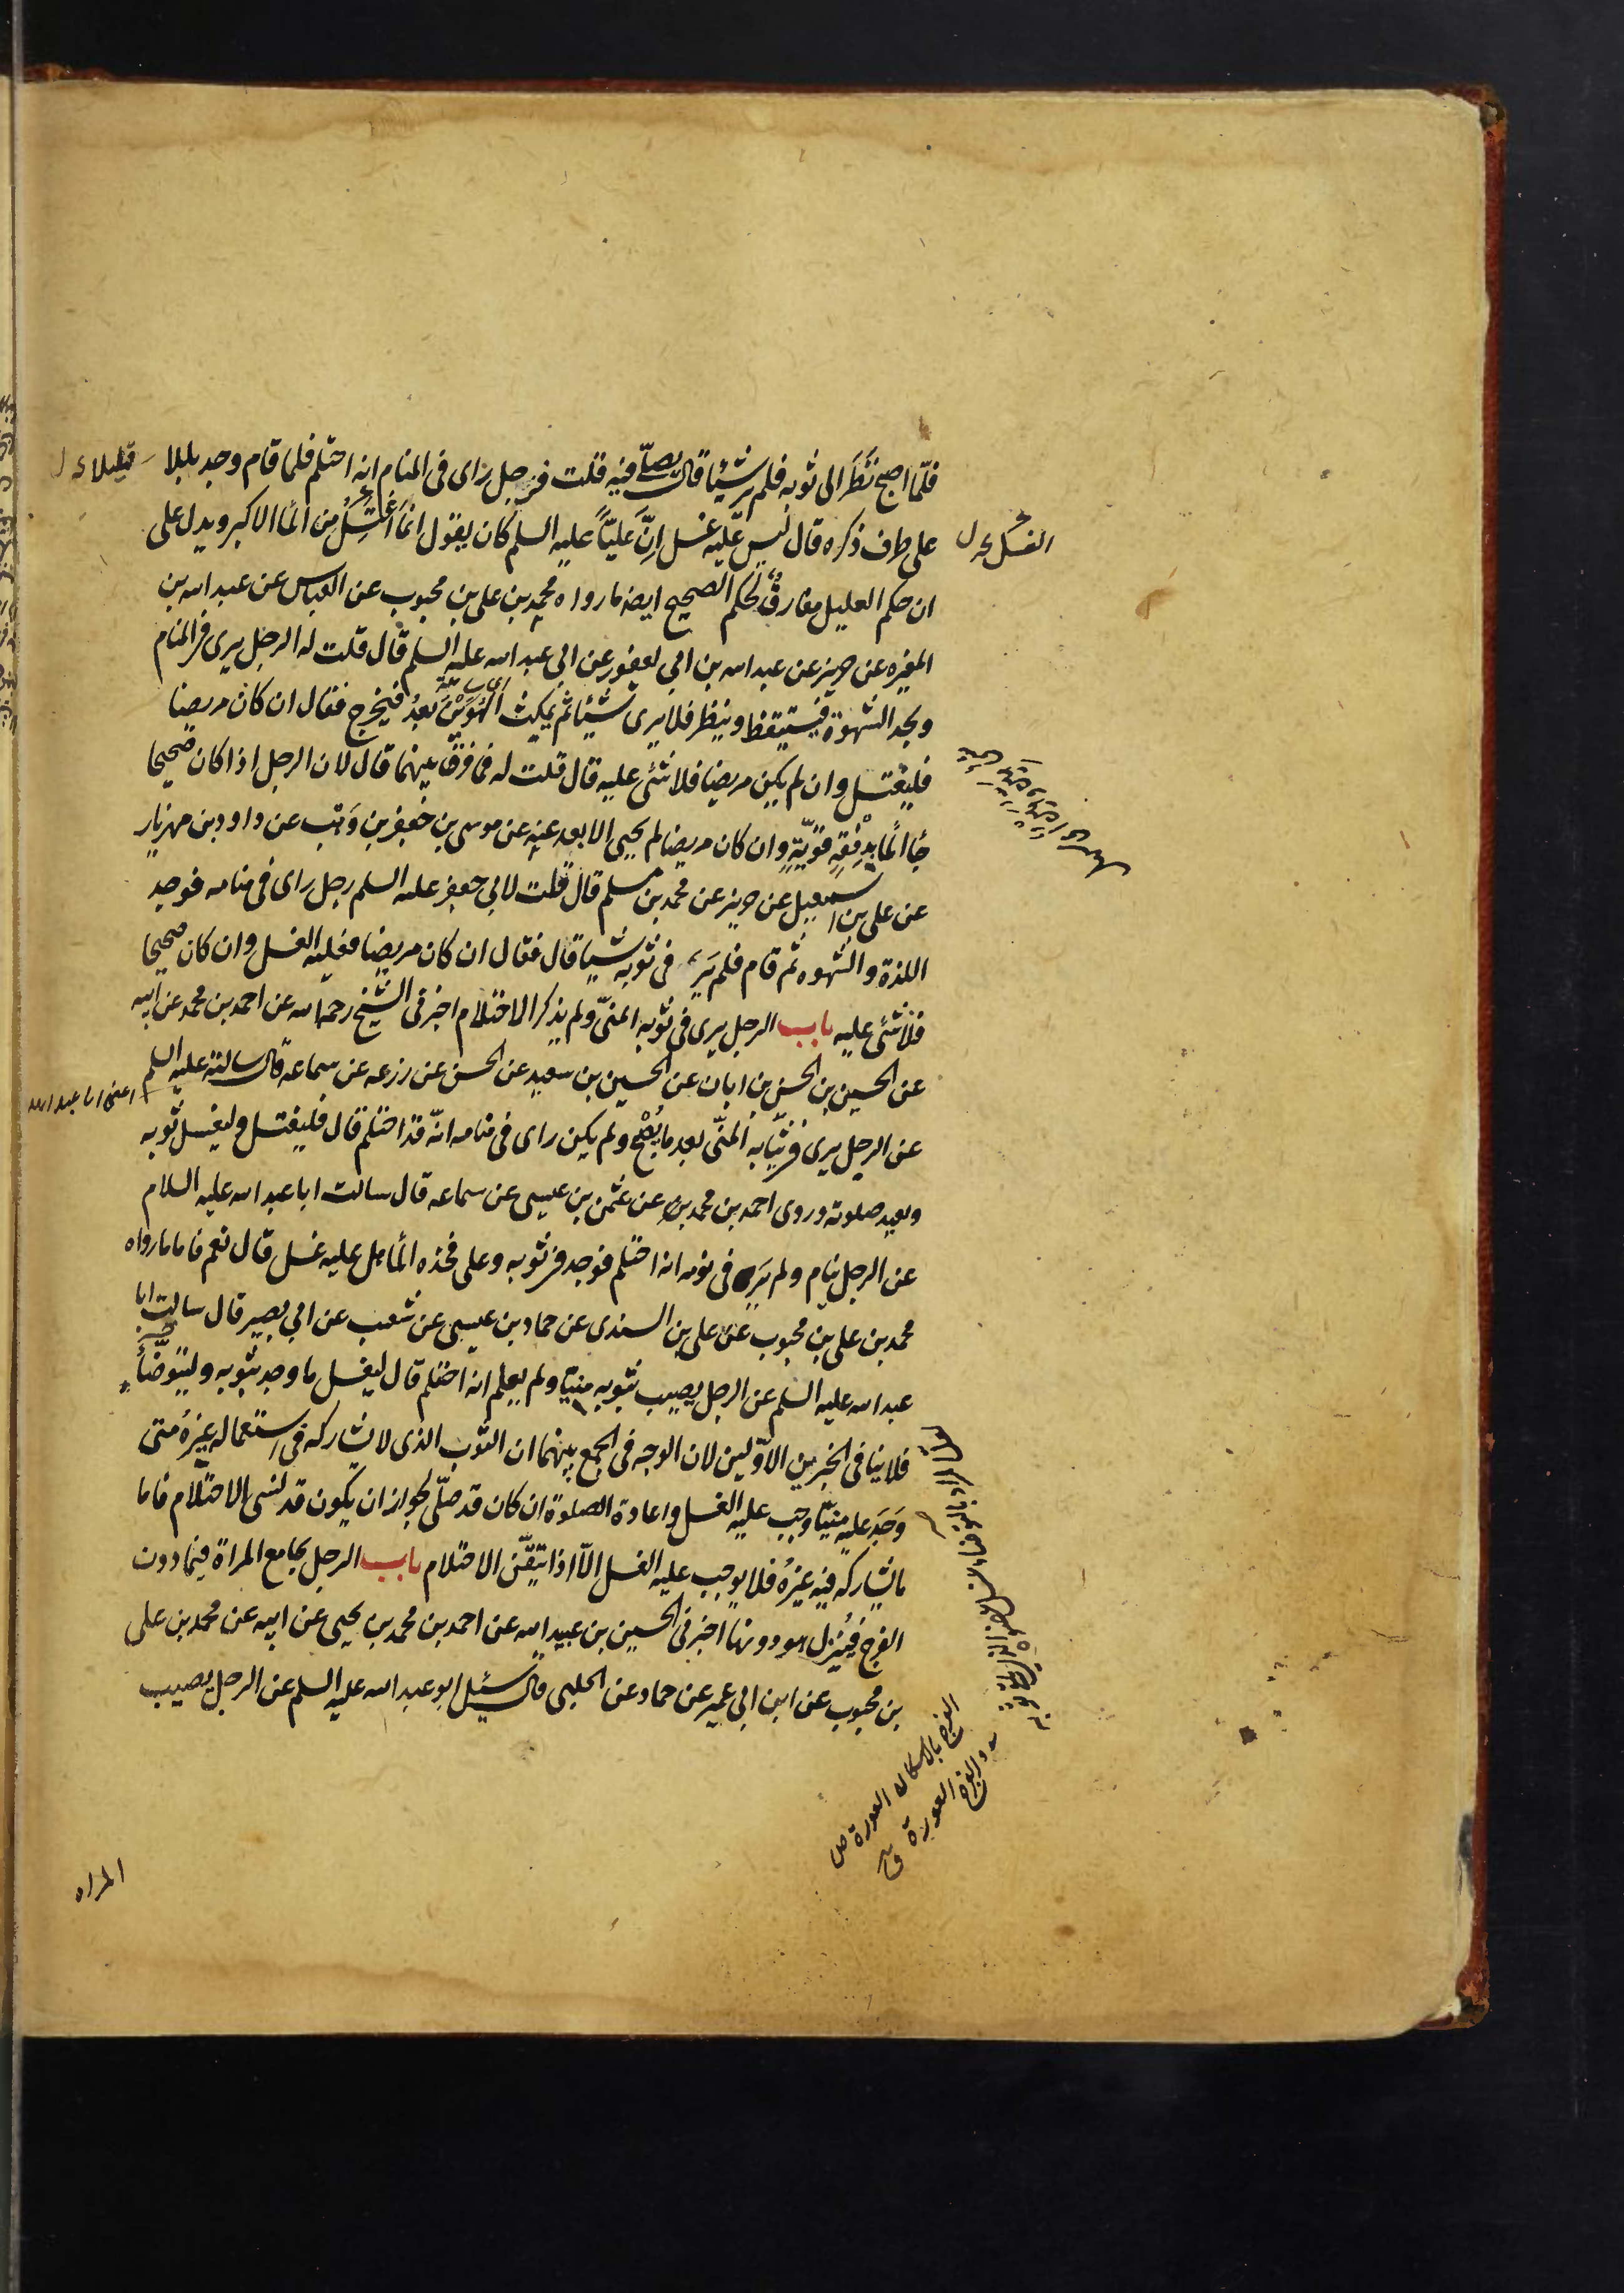 فلمّا اصبح نَظَرَ الى ثوبه فلم ير شيئا قال يصلّى فيه قلت فرجل راى فى المنام انه احتلم فلما قام وجد بللا قليلا
على طرف ذكره قال ليس عليه غسل اِنَّ عليّاً عليه السلم كان يقول انّما الغسل من الماء الاكبر ويدل على
الغسل
ان حكم العليل مفارقٌ لحكم الصحيح ايضا ما رواه محمد بن على بن محبوب عن العباس عن عبد الله بن
المغيره عن حريز عن عبد الله بن ابى يعفور عن ابى عبد الله عليه السلم قال قلت له الرجل يرى فى المنام
ويجد الشهوة فيستيقظ وينظر فلا يرى شيئا ثم يمكث الهُوَيْنَ بعدُ فيخرج فقال ان كان مريضا
فليغتسل وان لم يكن مريضا فلا شئ عليه قال قلت له فما فرق بينهما قال لان الرجل اذا كان صحيحا
جاء الماء بدِفْعَةٍ قويّةٍ وان كان مريضا لم يجئ الا بعد عنه عن موسى بن جعفر بن وَهْب عن داود بن مهزيار
عن على بن اسمعيل عن حريز عن محمد بن مسلم قال قلت لابى جعفر عليه السلم رجل راى فى منامه فوجد
اللذة والشهوه ثم قام فلم يَرَ فى ثوبه شيئا قال فقال ان كان مريضا فعليه الغسل وان كان صحيحا
فلا شئ عليه باب الرجل يرى فى ثوبه المنىّ ولم يذكر الاحتلام اخبرنى الشيخ رحمه الله عن احمد بن محمد عن ابيه
عن الحسين بن الحسن بن ابان عن الحسين بن سعيد عن الحسن عن زرعه عن سماعه قال سالته عليه السلم
اعنى ابا عبد الله
عن الرجل يرى فى ثيابه المنىّ بعد ما يُصْبِح ولم يكن راى فى منامه انّه قد احتلم قال فليغتسل وليغسل ثوبه
ويعيد صلوته وروى احمد بن محمد بن عن عثمن بن عيسى عن سماعه قال سالت ابا عبد الله عليه السلام
عن الرجل ينام ولم يَرَ فى نومه انه احتلم فوجد فى ثوبه وعلى فخذه الماء هل عليه غسل قال نعم فاما ما رواه
محمد بن على بن محبوب عن على بن السندى عن حماد بن عيسى عن شعيب عن ابى بصير قال سالت ابا
عبد الله عليه السلم عن الرجل يصيب بثوبه منيّا ولم يعلم انه احتلم قال ليغسل ما وجد بثوبه وليتوضّأ
فلا ينافى الخبرين الاوّلين لان الوجه فى الجمع بينهما ان الثوب الذى لا يشاركه فى استعماله غيرُهُ متى
وَجَدَ عليه منيّا وجب عليه الغسل واعادة الصلوة ان كان قد صلّى لجواز ان يكون قد نسى الاحتلام فاما
ما يشاركه فيه غيرُهُ فلا يوجب عليه الغسل الّا اذا تيقّن الاحتلام باب الرجل يجامع المراة فيما دون
الفرج فيُنزِل هو دونها اخبرنى الحسين بن عبيد الله عن احمد بن محمد بن يحيى عن ابيه عن محمد بن على
بن محبوب عن ابن ابى عمير عن حماد عن الحلبى قال سئل ابو عبد الله عليه السلم عن الرجل يصيب
الفرج بالاسكان العورة ص
والفرج العورة ق
المراه